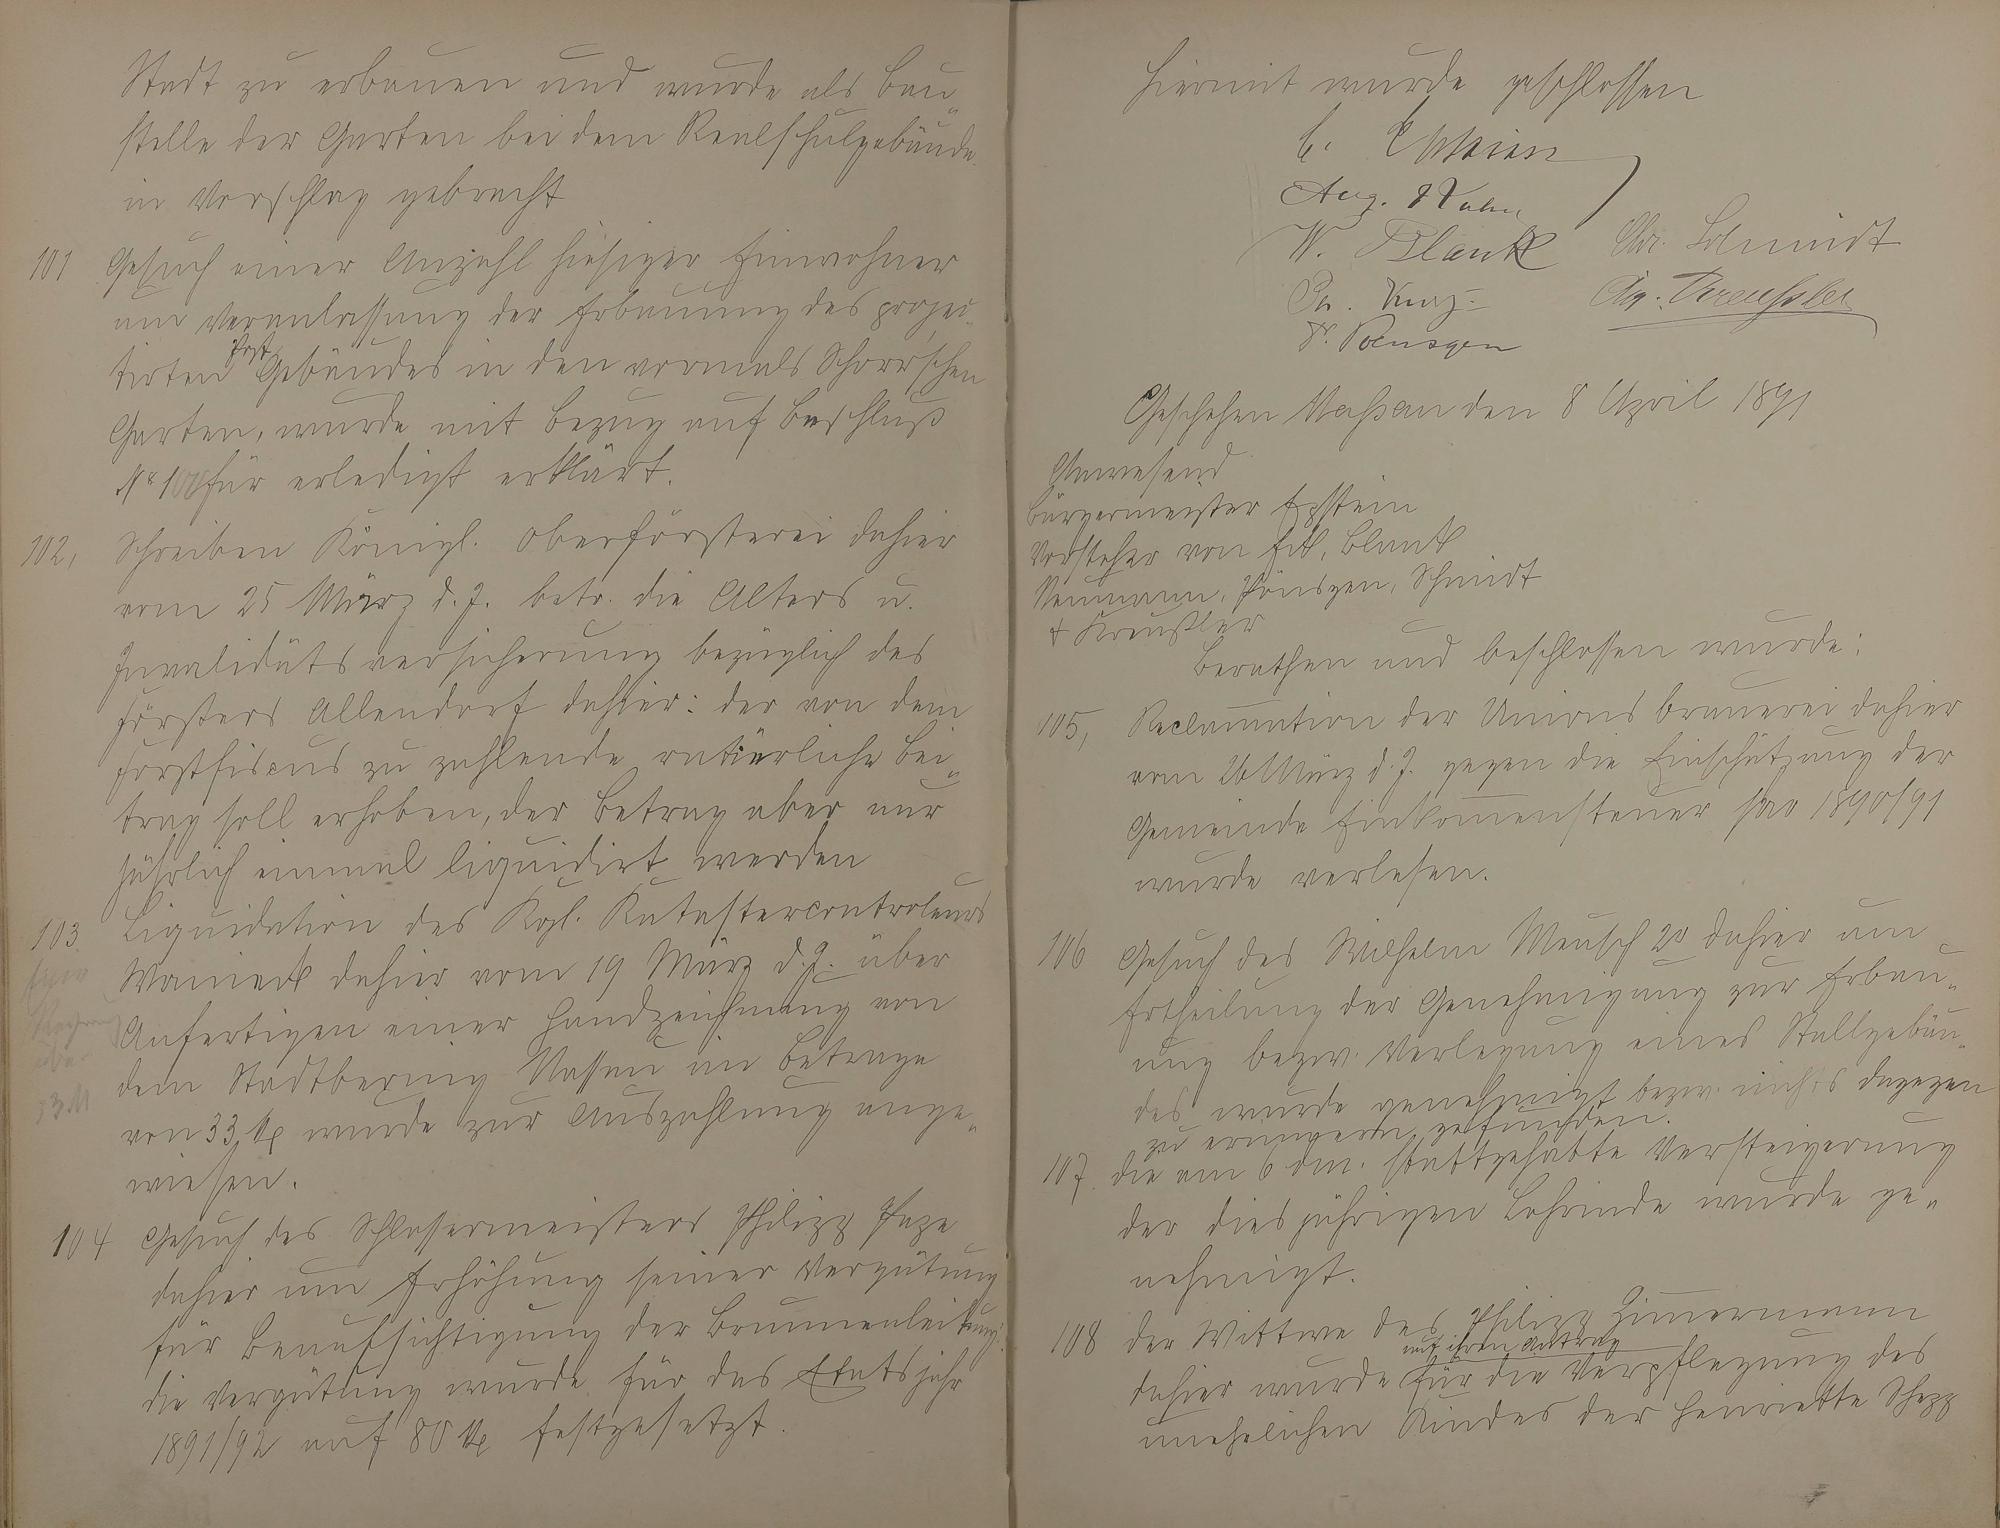 Stadt zu erbauen und wurde als Bau„
stelle der Garten bei dem Realschulgebäude
in Vorschlag gebracht
101 Gesuch einer Anzahl hiesiger Einwohner
um Veranlassung der Erbauung des projec„
tirten Post Gebäudes in den vormals Schorr'schen
Garten, wurde mit Bezug auf Beschluß
No 100 für erledigt erklärt.
102, Schreiben Königl. Oberförsterei dahier
vom 25 März d. J. betr. die Alters u.
Invaliditätsversicherung bezüglich des
Försters Allendorf dahier: der von dem
Forstfiscus zu zahlende ratierliche Bei„
trag soll erhoben, der Betrag aber nur
jährlich einmal liquidirt werden
103 Liquidation des Kgl. Katastercontroleurs
Warneck dahier vom 19 März d. J. über
Anfertigen einer Handzeichnung von
dem Stadtbering Nassau im Betrage
von 33 M wurde zur Auszahlung ange„
wiesen.
33 M
104 Gesuch des Schlossermeisters Philipp Page
dahier um Erhöhung seiner Vergütung
für Beaufsichtigung der Brunnenleitung:
die Vergütung wurde für das Etatsjahr
1891/92 auf 80 M festgesetzt.
Hiermit wurde geschlossen
E. Epstein
Aug.
W. Blank Chr. Schmidt
Kurz Aug. Kreußler
Poensgen
Geschehen Nassau den 8 April 1891
Anwesend
Bürgermeister Epstein
Vorsteher von Eck, Blank
Neumann, Pönsgen, Schmidt
& Kreußler
Berathen und beschlossen wurde:
105, Reclamation der Unionsbrauerei dahier
vom 26 März d. J. gegen die Einschätzung der
Gemeinde Einkommensteuer pro 1890/91
wurde verlesen.
106 Gesuch des Wilhelm Meusch 2r dahier um
Ertheilung der Genehmigung zur Erbau„
ung bezw. Verlegung eines Stallgebäu„
des wurde genehmigt bezw. nichts dagegen
zu erinnern gefunden.
107 die am 6 dM. stattgehabte Versteigerung
der diesjährigen Lohrinde wurde ge„
nehmigt.
108 der Wittwe des Philipp Zimmermann
auf ihren Antrag
dahier wurde für die Verpflegung des
unehelichen Kindes der Henriette Schepp